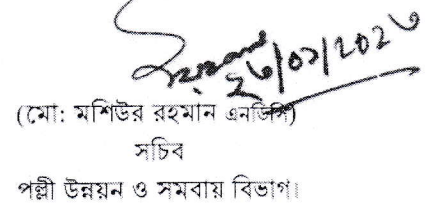 ২৬/০১/২০২৬
(মো: মশিউর রহমান এনডিসি)
সচিব
পল্লী উন্নয়ন ও সমবায় বিভাগ।